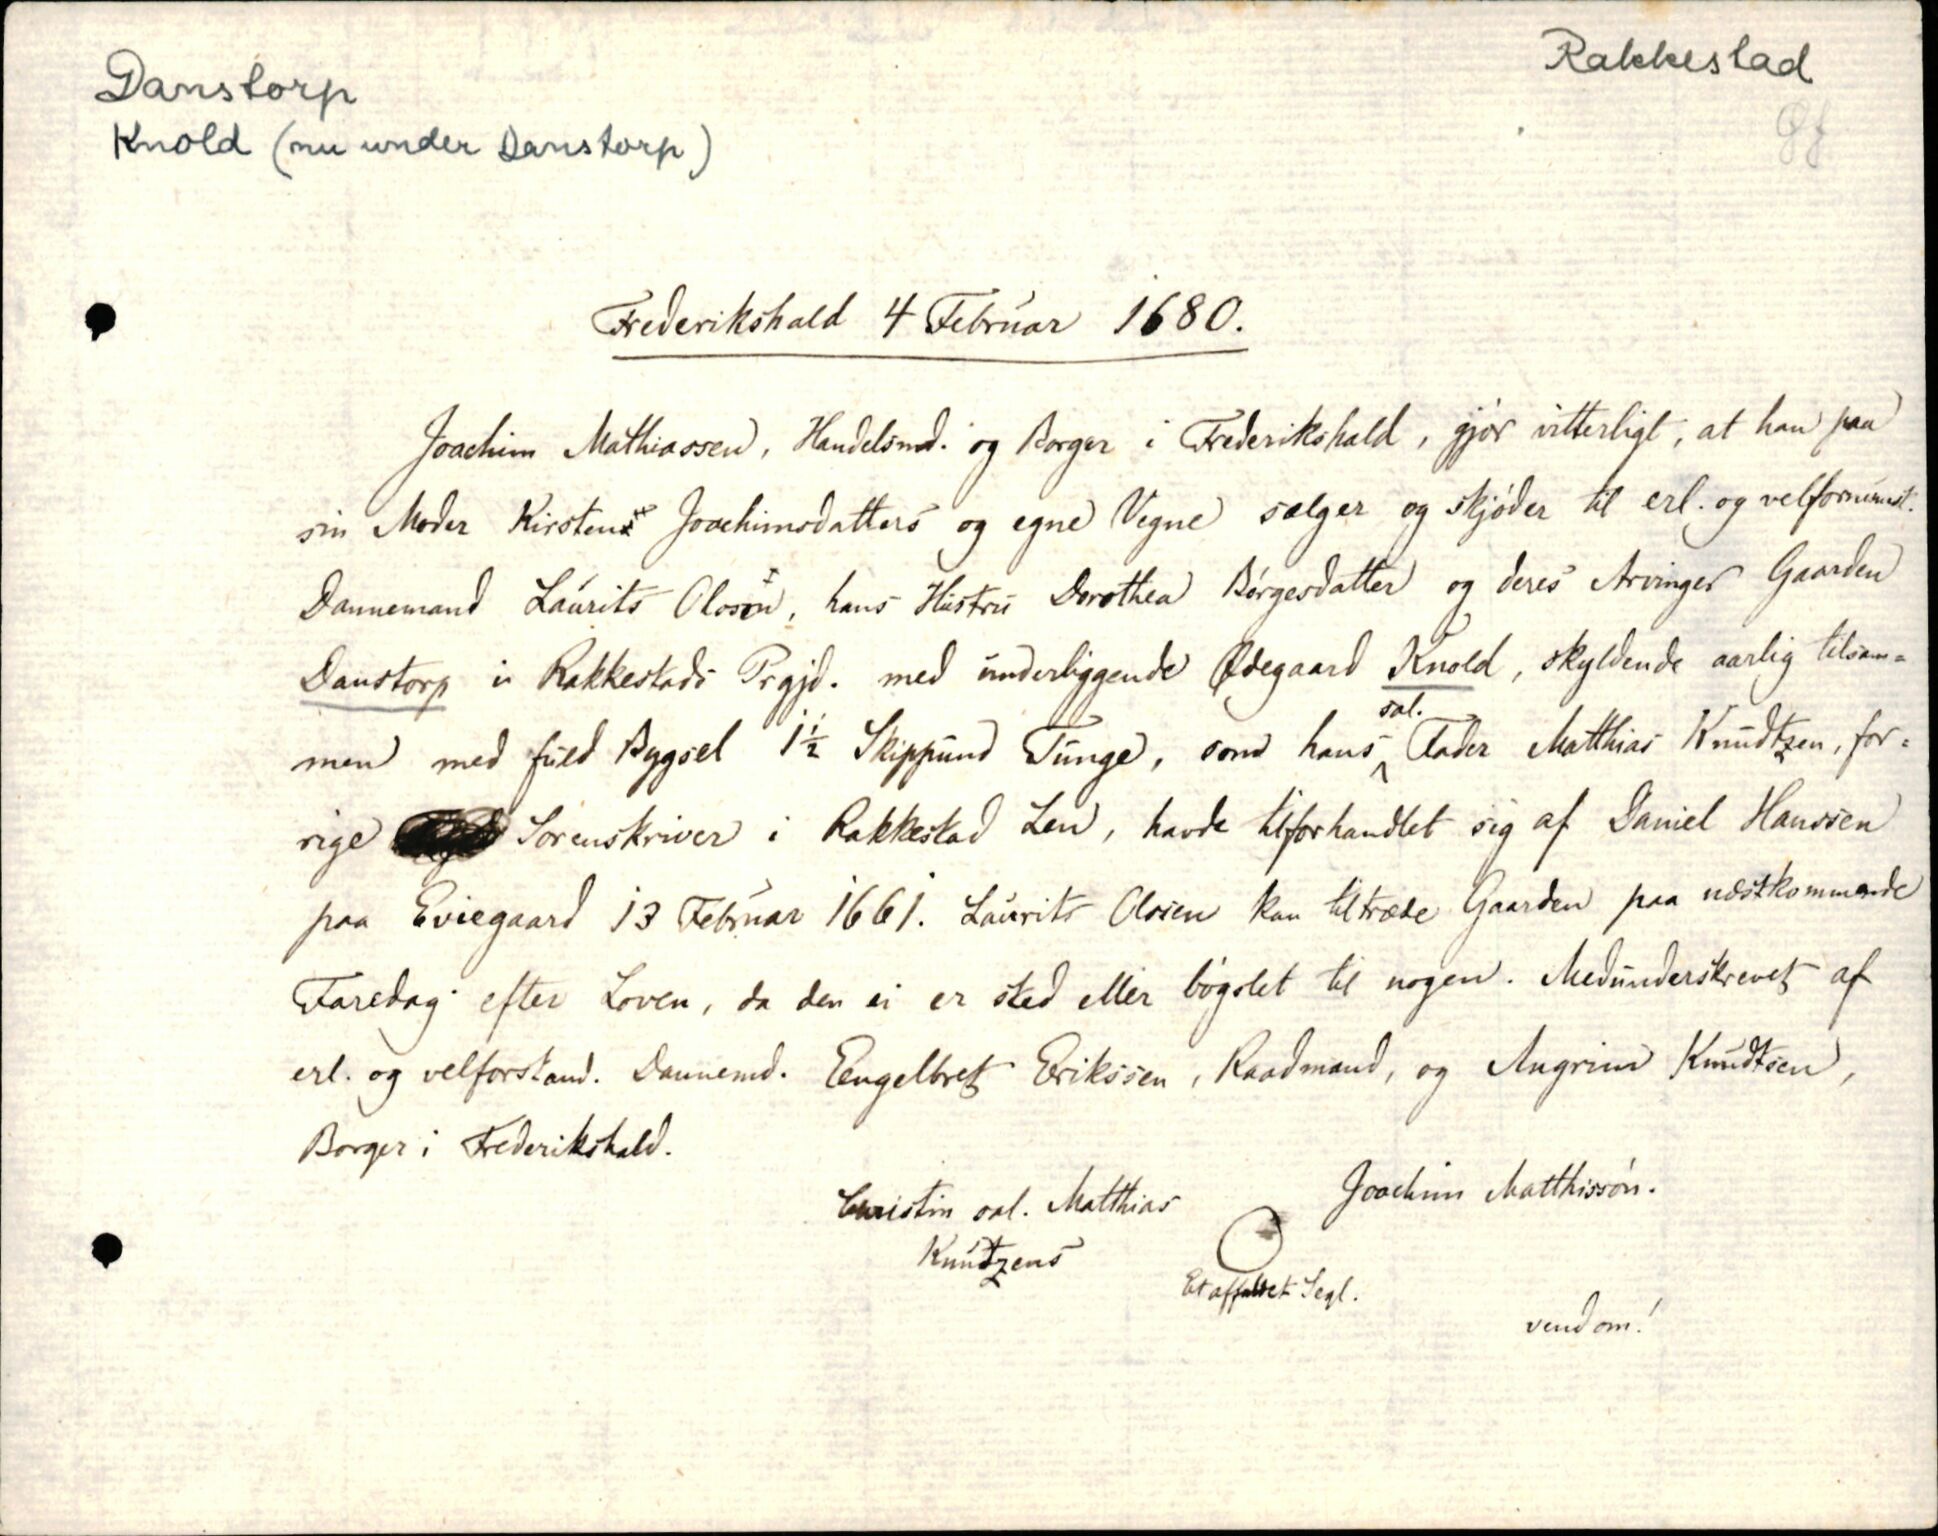 Danstorp
Rakkestad
Knold (nu under Danstorp)
Øf
Frederikshald 4 Februar 1680.
Joachim Mathiassen, Handelsmd. og Borger i Frederikshald, gjør vitterligt, at han paa
sin Moder Kirsten Joachimsdatters og egne Vegne sælger og skjøder til erl. og velfornumst.
Dannemand Laurits Olosen, hans Hustru Dorothea Børgesdatter og deres Arvinger Gaarden
Danstorp i Rakkestads Prgjd. med underliggende Ødegaard Knold, skyldende aarlig tilsam=
men med fuld Bygsel 1½ Skippund Tunge, som hans sal. Fader Matthias Knudtzen, for=
rige Sorenskriver i Rakkestad Len, havde tilforhandlet sig af Daniel Hanssen
paa Eviegaard 13 Februar 1661. Laurits Olosen kan tiltræde Gaarden paa næstkommende
Faredag efter Loven, da den ei er sted eller bøgslet til nogen. Medunderskrevet af
erl. og velforstand. Dannemd. Eengelbret Erikssen, Raadmand, og Angrim Knudtsen,
Borger i Frederikshald.
Christin sal. Matthias
Knudtzens
Joachim Matthissøn.
Et affaldet Segl.
vend om!